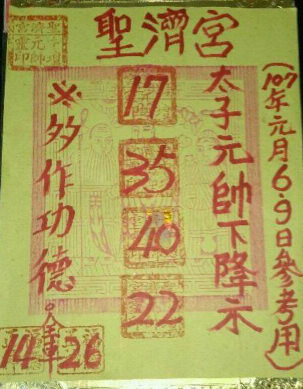 聖濟宮
(107年元月6.9日參考用)
太子元帥下降示
17
35
40
22
※多作功德
14 26